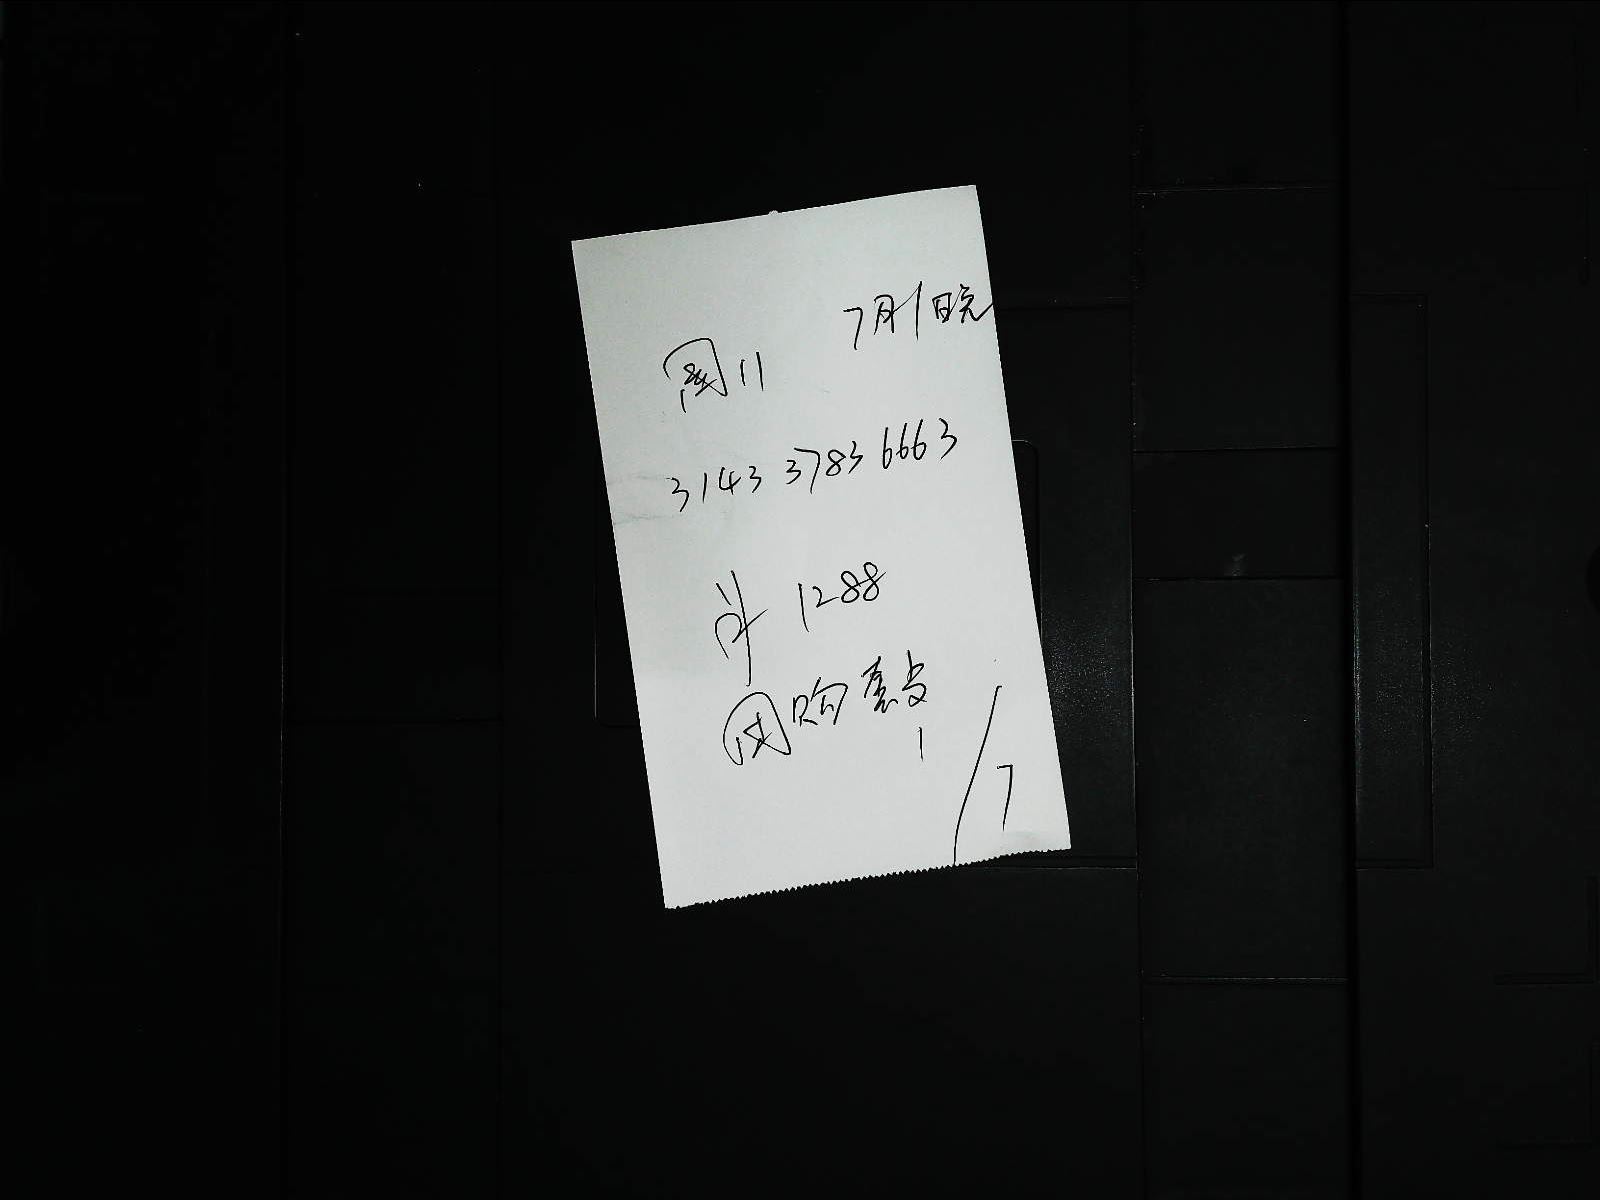 7月1日晚
团11
3143 3783 6663
单 1288
团购套餐
1/7